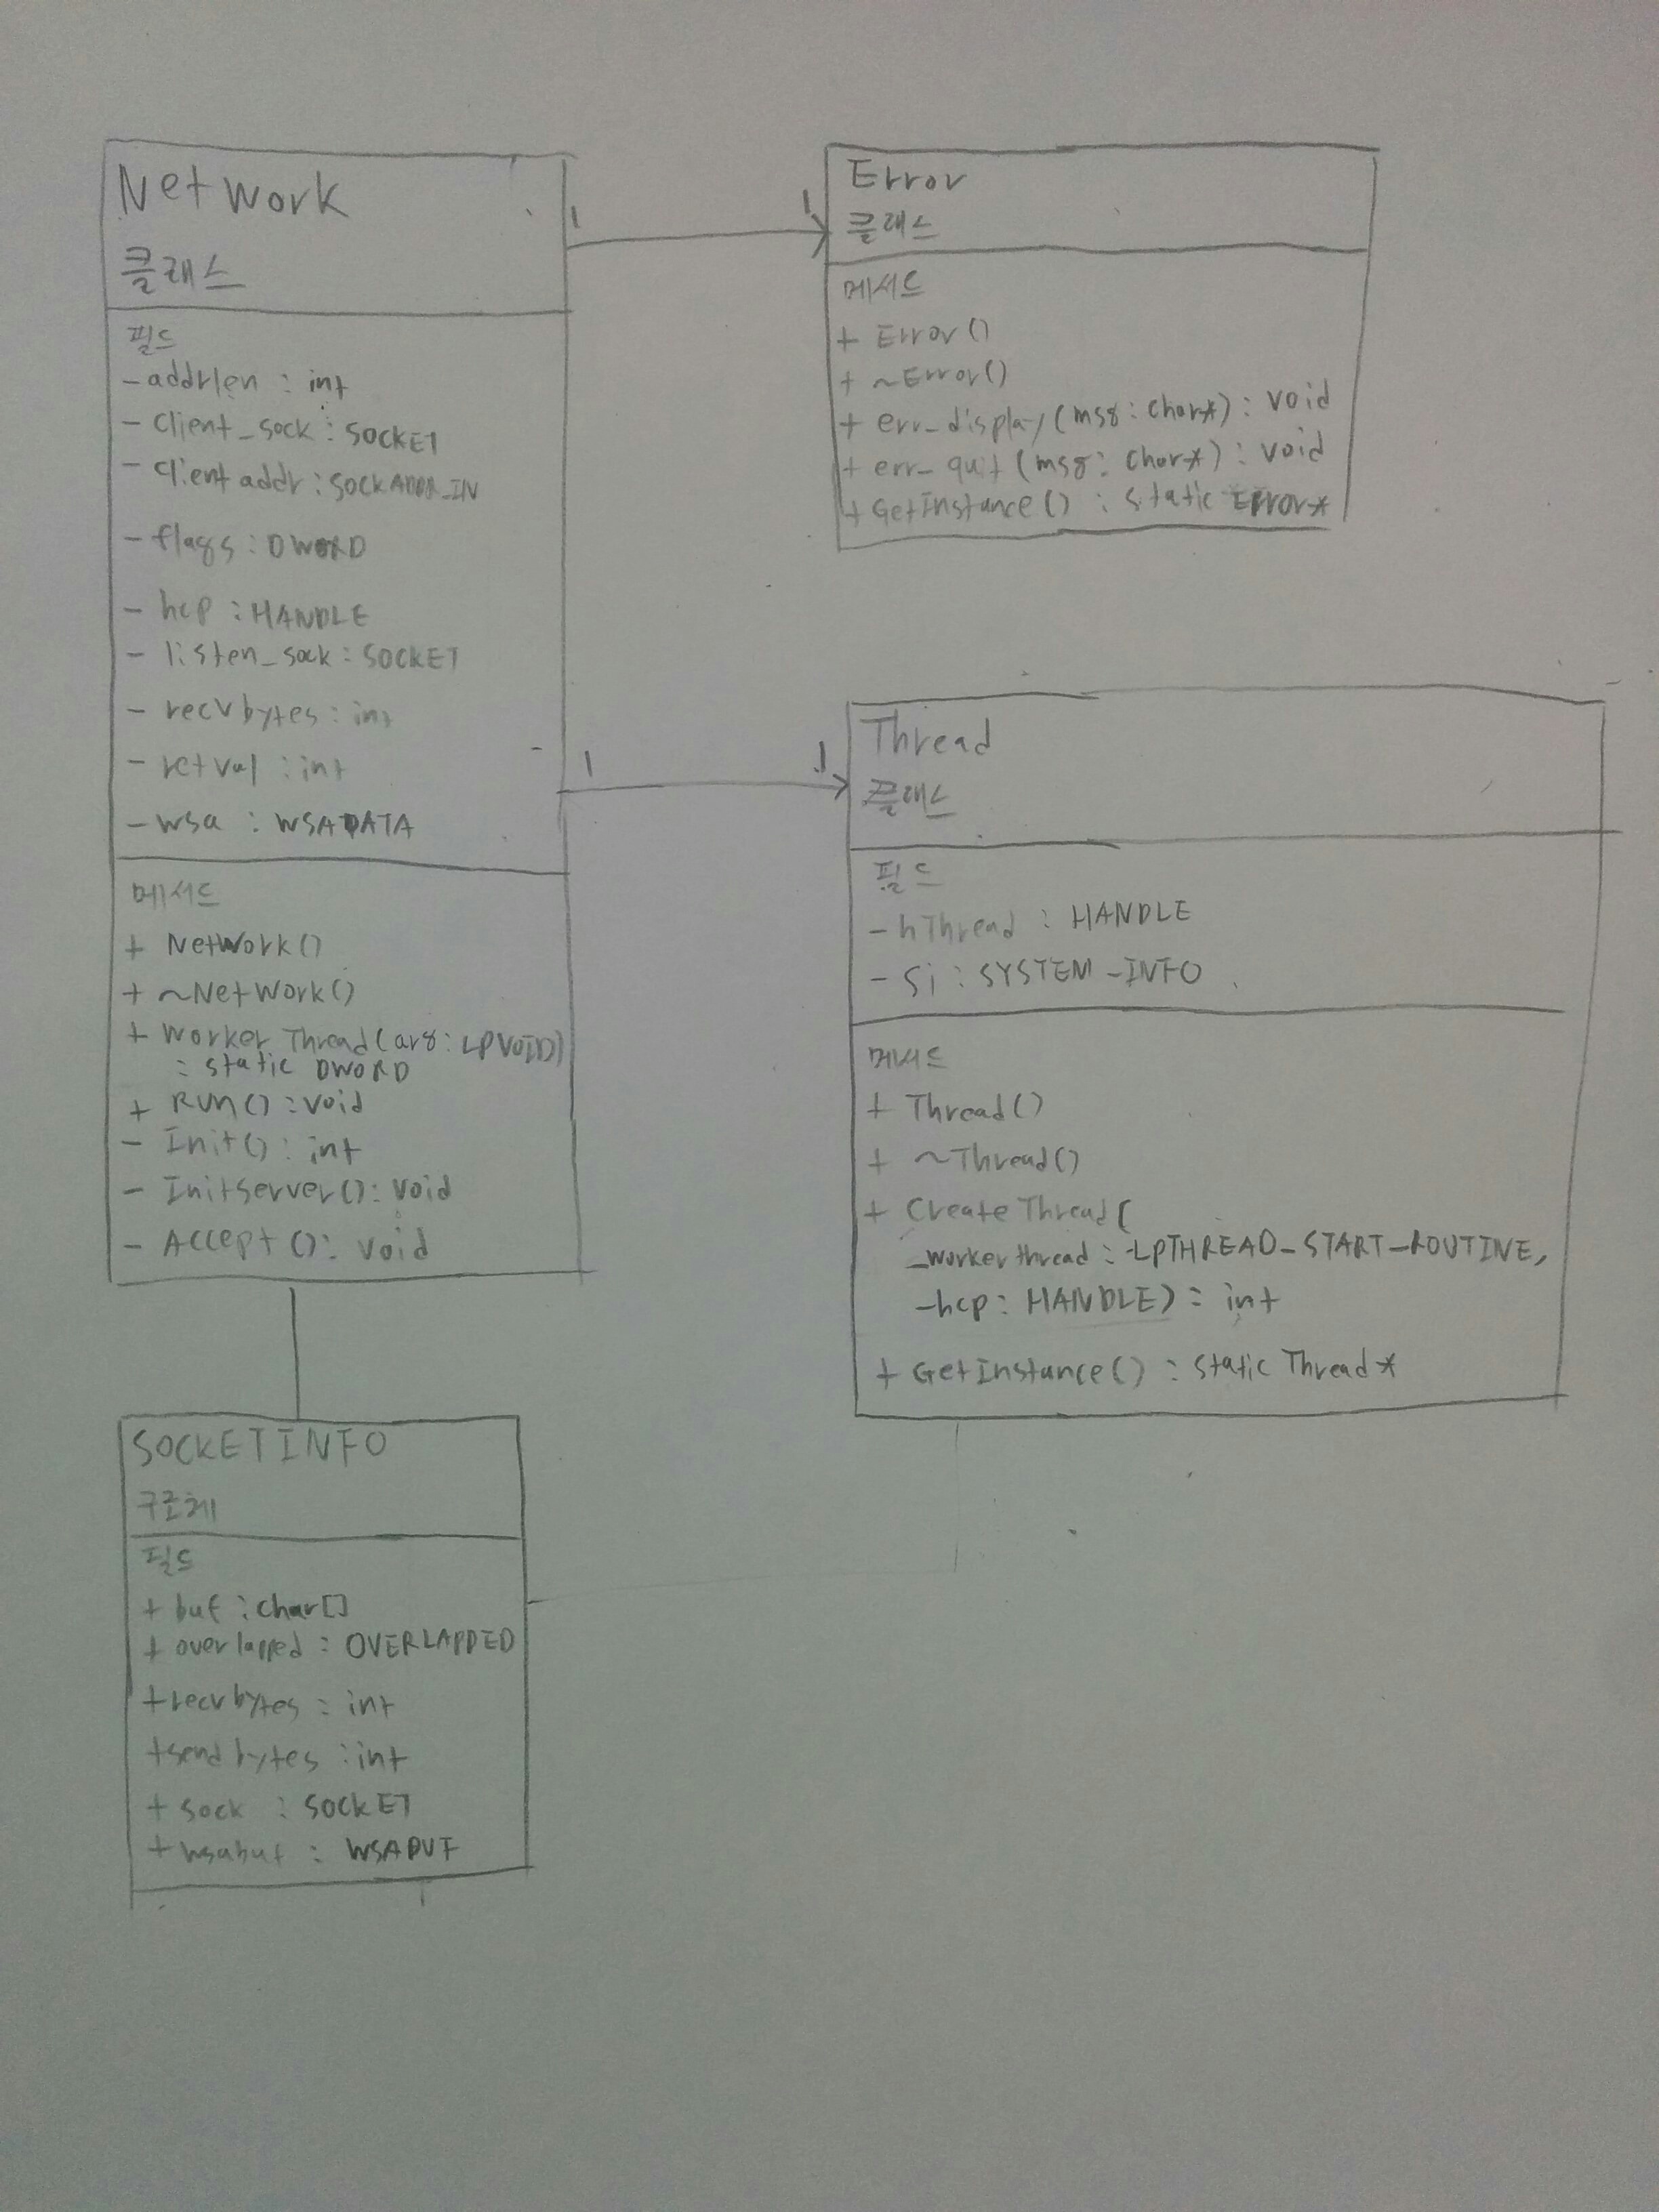 Network
클래스
필드
- addrlen : int
- client_sock : SOCKET
- clientaddr : SOCKADDR_IN
- flags : DWORD
- hcp : HANDLE
- listen_sock : SOCKET
- recvbytes : int
- retval : int
- wsa : WSADATA
메서드
+ Network()
+ ~Network()
+ WorkerThread(arg : LPVOID)
: static DWORD
+ Run() : void
- Init() : int
- InitServer() : void
- Accept() : void
1
1
Error
클래스
메서드
+ Error()
+ ~Error()
+ err_display(msg : char*) : void
+ err_quit(msg : char*) : void
+ GetInstance() : static Error*
1
1
Thread
클래스
필드
- hThread : HANDLE
- si : SYSTEM_INFO
메서드
+ Thread()
+ ~Thread()
+ CreateThread(
_workerthread : LPTHREAD_START_ROUTINE,
_hcp : HANDLE) : int
+ GetInstance() : static Thread*
SOCKETINFO
구조체
필드
+ buf : char[]
+ overlapped : OVERLAPPED
+ recvbytes : int
+ sendbytes : int
+ sock : SOCKET
+ wsabuf : WSABUF